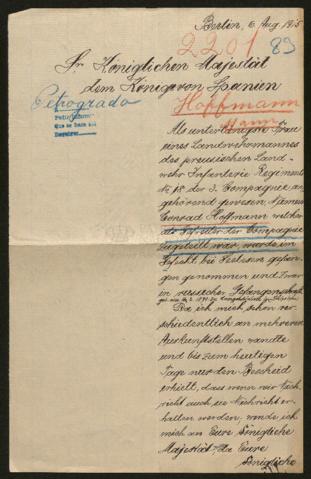 Berlin, 6. Aug. 1915
2201 83
Sr Königlichen Majestät
dem König von Spanien
Petrogrado
Hoffmann
Als unterthänigste Frau
eines Landwehrmannes
des preussischen Land-
wehr Infanterie Regiments
№ 18 der 3. Compagnie an-
gehörend gewesen Namens
Conrad Hoffmann welcher
als Gefreiter der Compagnie
zugeteilt war, wurde im
Gefecht bei gefan-
gen genommen und zwar
in russischer Gefangenschaft
Da ich mich schon ver-
schiedentlich an mehreren
Auskunftstellen wandte
und bis zum heutigen
Tage nur den Bescheid
erhielt, dass wenn wir Nach-
richt auch sie Nachricht er-
halten werden, wende ich
mich an Eure Königliche
Majestät, da Eure
Königliche